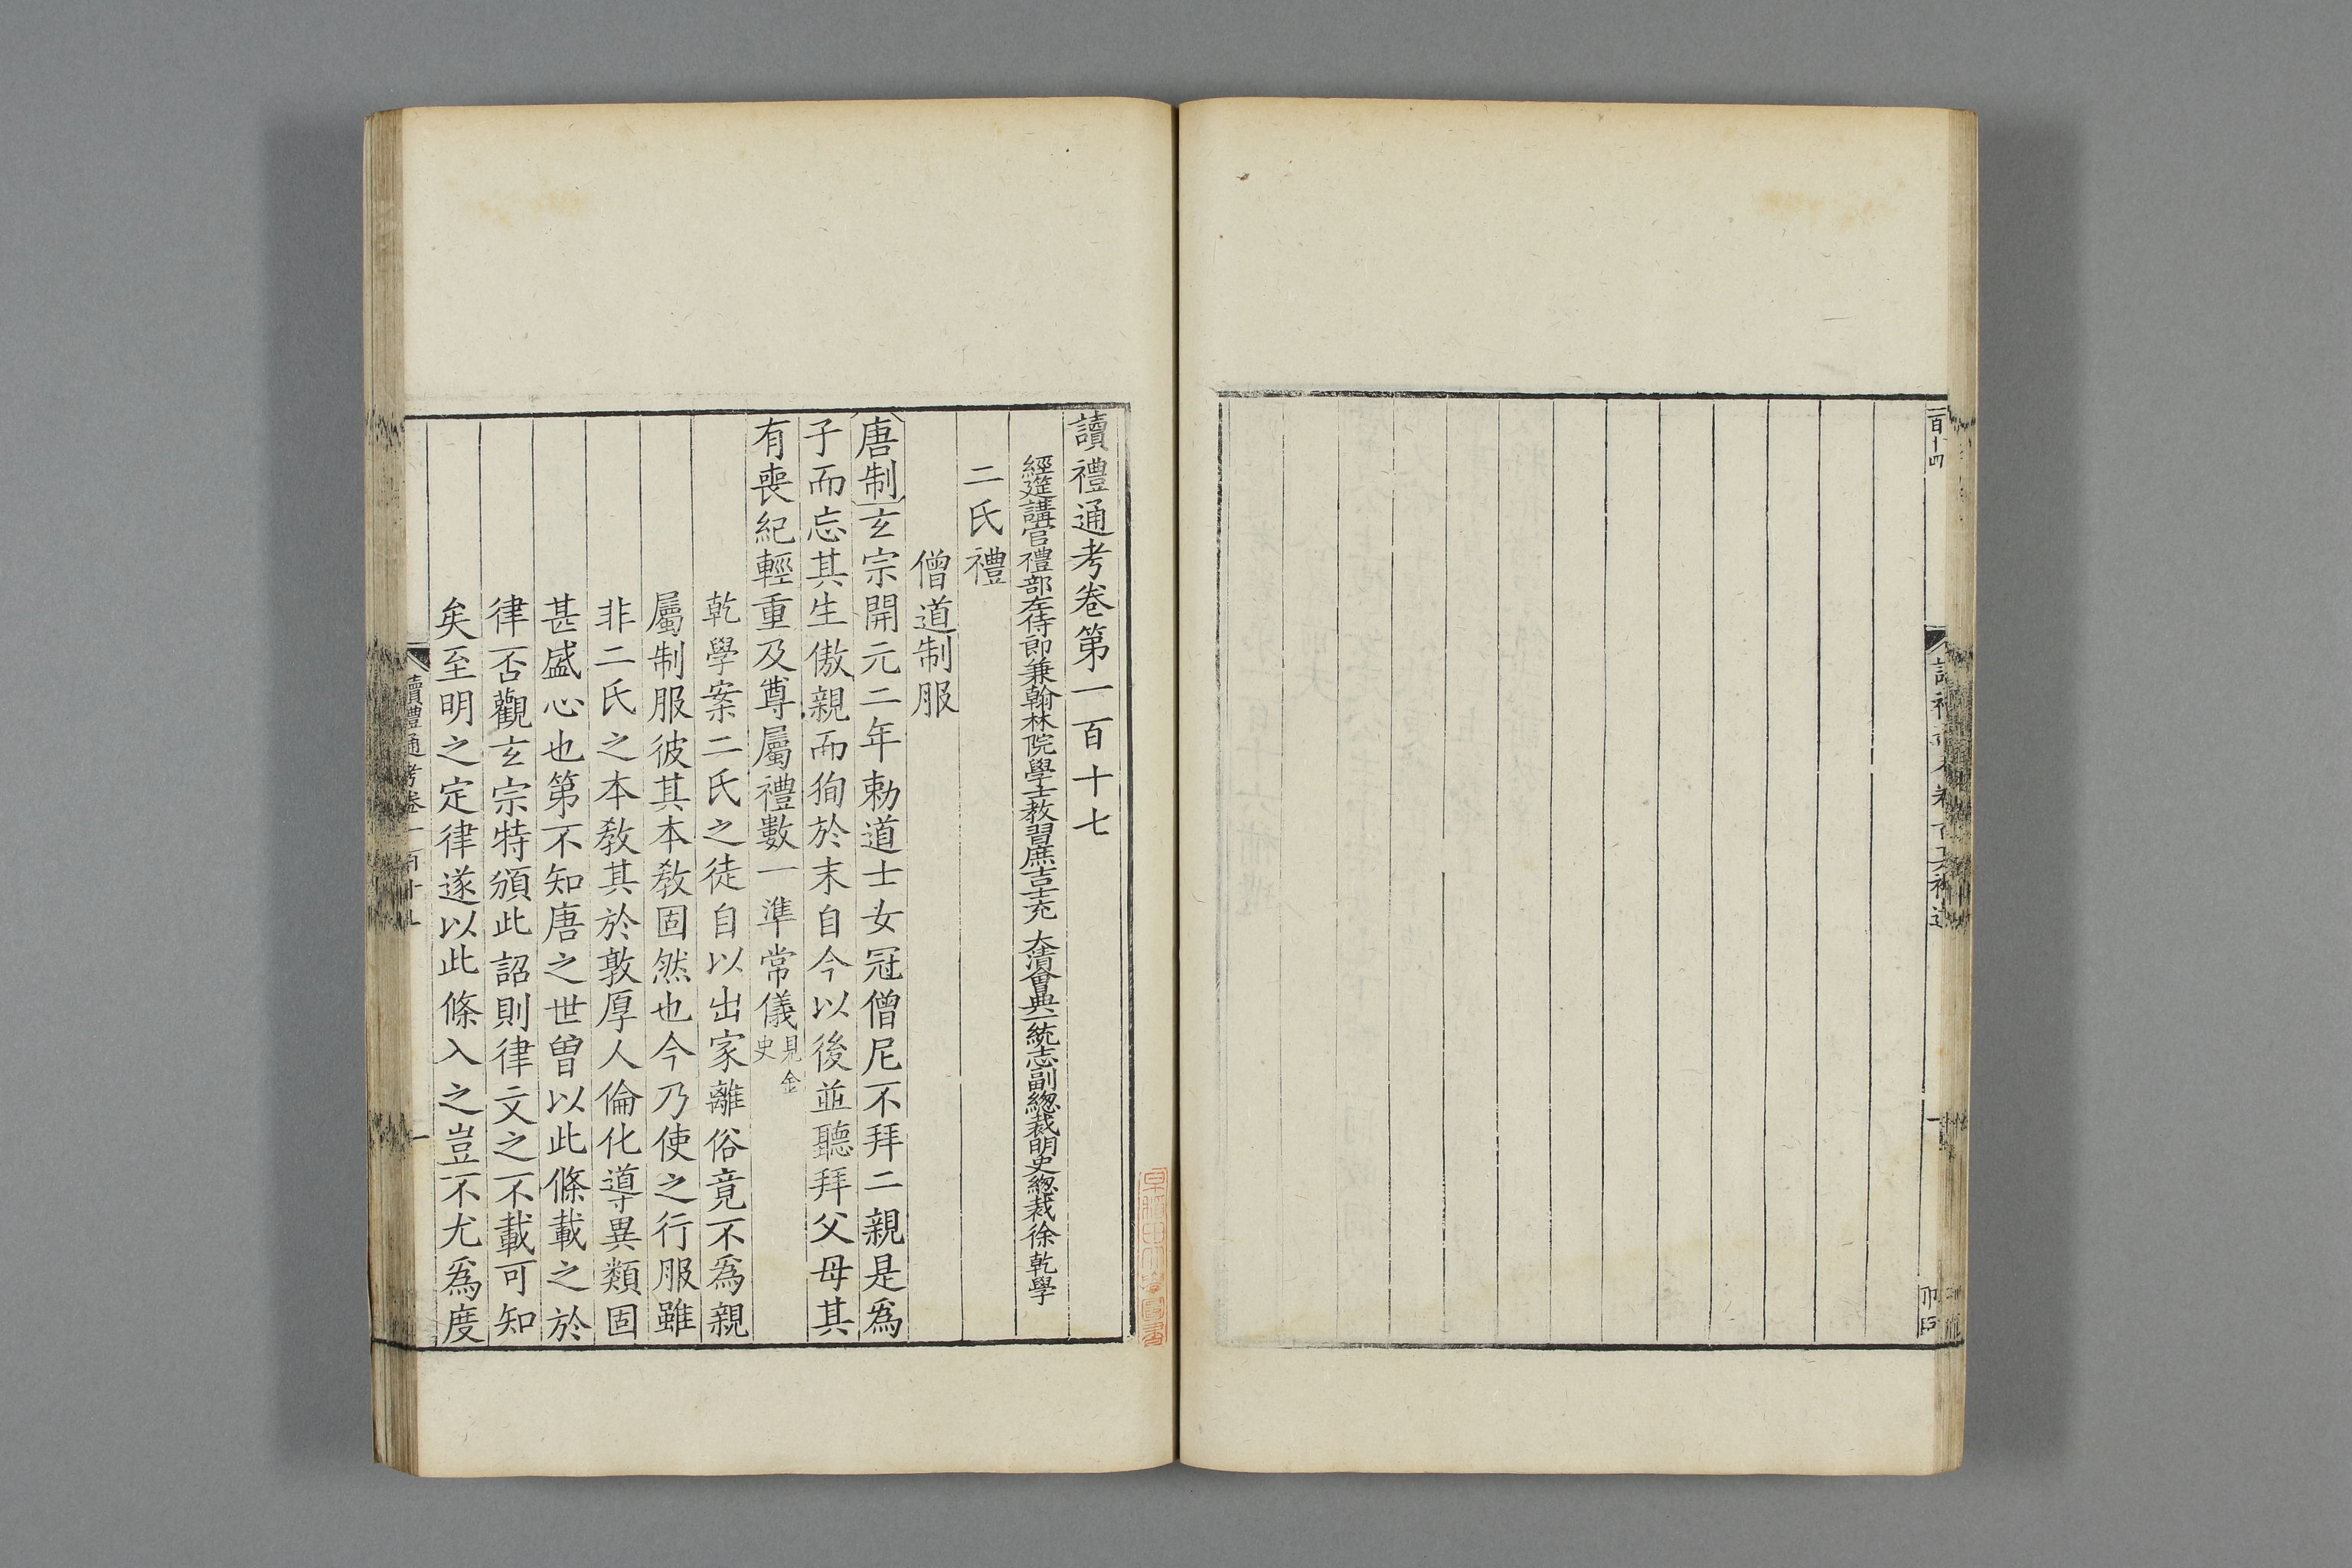 讀禮通考卷第一百十七
經筵講官禮部左侍郎兼翰林院學士教習庶吉士充 大清會典一統志副總裁明史總裁徐乾學
二氏禮
僧道制服
唐制玄宗開元二年勅道士女冠僧尼不拜二親是爲
子而忘其生傲親而徇於末自今以後並聽拜父母其
有喪紀輕重及尊屬禮數一準常儀見金史
乾學案二氏之徒自以出家離俗竟不爲親
屬制服彼其本敎固然也今乃使之行服雖
非二氏之本敎其於敦厚人倫化導異類固
甚盛心也第不知唐之世曾以此條載之於
律否觀玄宗特頒此詔則律文之不載可知
矣至明之定律遂以此條入之豈不尤爲度
讀禮通考卷一百十七
一